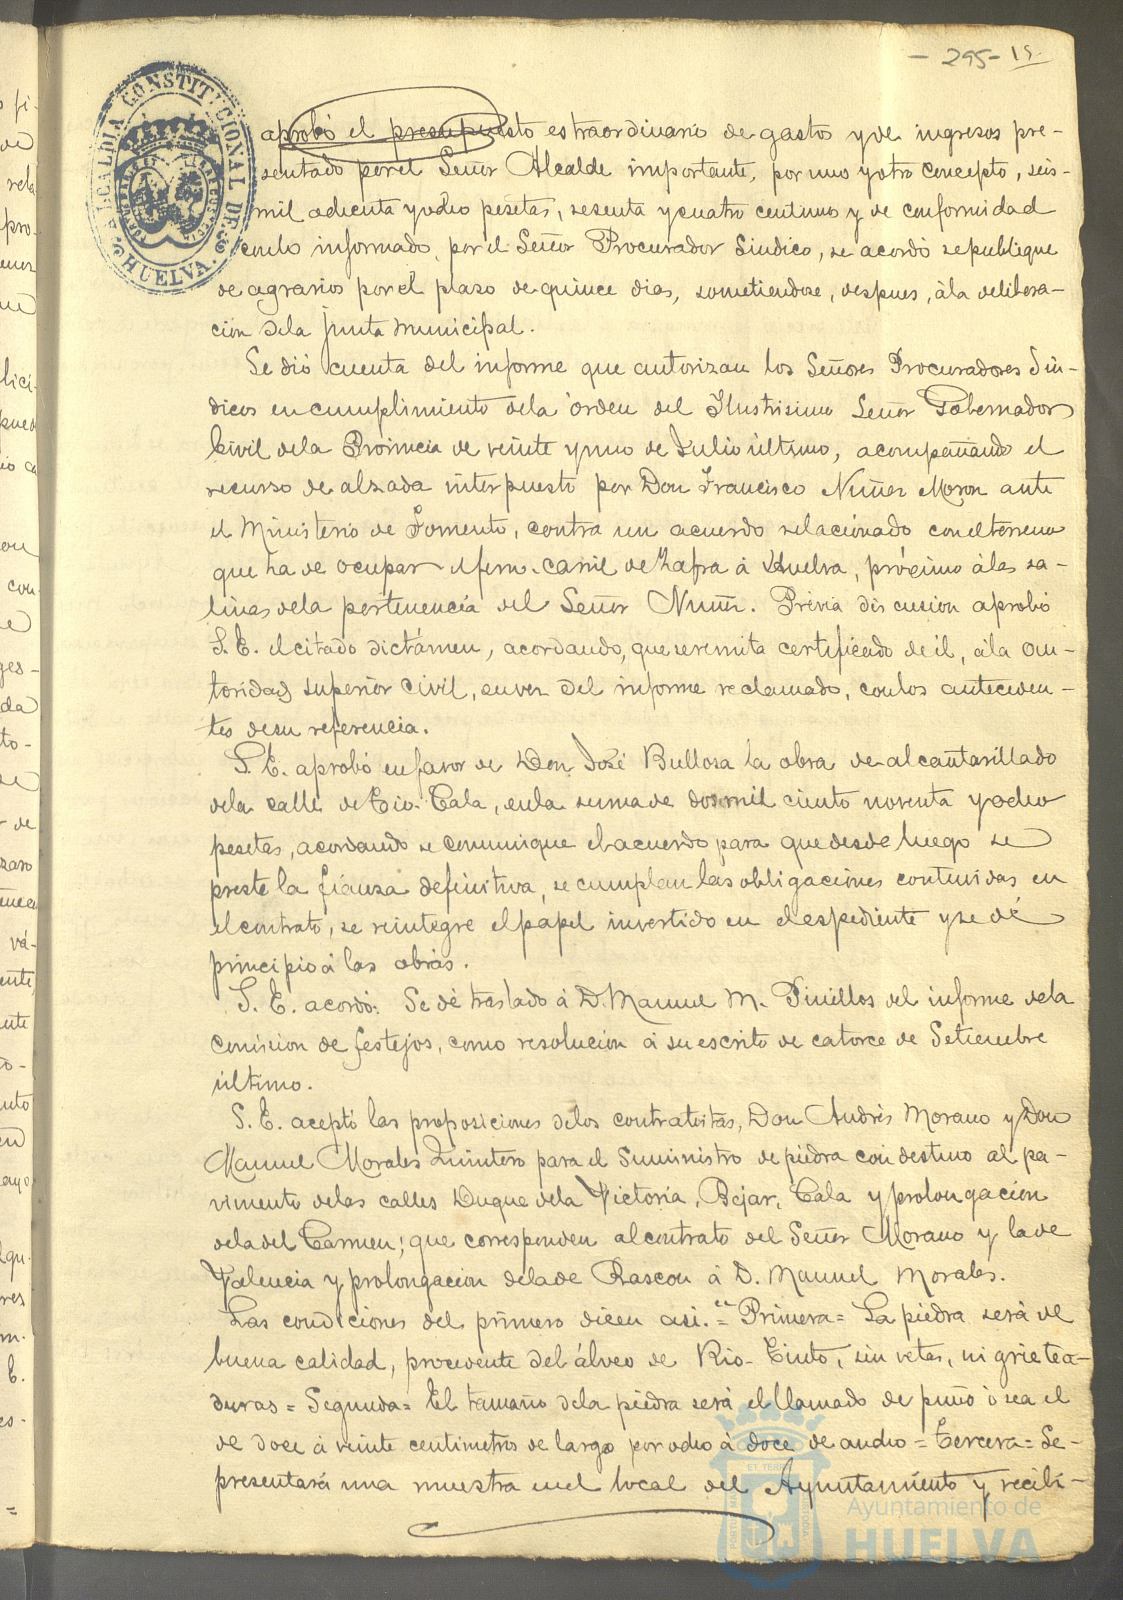 - 295 - 15
ALCALDIA CONSTITUCIONAL DE HUELVA.
aprobó el presupuesto estraordinario de gastos y de ingresos pre-
sentado por el Señor Alcalde importante, por uno y otro concepto, seis
mil ochenta y ocho pesetas, sesenta y cuatro centimos y de conformidad
con lo informado, por el Señor Procurador Sindico, se acordó se publique
de agravios por el plazo de quince dias, sometiendose, despues, á la delibera-
ción de la Junta municipal.
Se dió cuenta del informe que autorizan los Señores Procuradores Sín-
dicos en cumplimiento de la órden del Ilustrisimo Señor Gobernador
Civil de la Provincia de veinte y uno de Julio último, acompañando el
recurso de alzada interpuesto por Don Francisco Nuñez Moron ante
el Ministerio de Fomento, contra un acuerdo relacionado con el terreno
que ha de ocupar el ferro-carril de Zafra á Huelva, próximo á las sa-
linas de la pertenencia del Señor Nuñez. Prévia discusion aprobó
S. E. el citado dictámen, acordando, que se remita certificado de él, á la au-
toridad superior civil, en vez del informe reclamado, con los anteceden-
tes de su referencia.
S. E. aprobó en favor de Don José Bullosa la obra de alcantarillado
de la calle de Tio-Cala, en la suma de dos mil ciento noventa y ocho
pesetas, acordando se comunique el acuerdo para que desde luego se
preste la fianza definitiva, se cumplan las obligaciones contenidas en
el contrato, se reintegre el papel invertido en el espediente y se dé
principio á las obras.
S. E. acordó: Se dé traslado á D. Manuel M. Pinillos del informe de la
Comision de festejos, como resolución á su escrito de catorce de Setiembre
último.
S. E. aceptó las proposiciones de los contratistas, Don Andrés Morano y Don
Manuel Morales Quintero para el suministro de piedra con destino al pa-
vimento de las calles Duque de la Victoria, Bejar, Cala y prolongación
de la del Carmen; que corresponden al contrato del Señor Morano y la de
Valencia y prolongacion de la de Rascon á D. Manuel Morales.
Las condiciones del primero dicen asi. = Primera = La piedra será de
buena calidad, procedente del álveo de Rio-Tinto, sin vetas, ni grietea-
duras = Segunda = El tamaño de la piedra será el llamado de puño ó sea el
de doce á veinte centimetros de largo por ocho á doce de ancho = Tercera = Se
presentará una muestra en el local del Ayuntamiento y recibi-
Ayuntamiento de
HUELVA